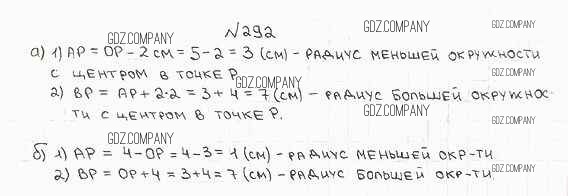 №292
GDZ.COMPANY
GDZ.COMPANY
GDZ.COMPANY
а) 1) AP = OP - 2 см = 5 - 2 = 3 (см) - радиус меньшей окружности
с центром в точке P.
GDZ.COMPANY
GDZ.COMPANY
2) BP = AP + 2·2 = 3 + 4 = 7 (см) - радиус большей окружнос-
ти с центром в точке P.
GDZ.COMPANY
GDZ.COMPANY
GDZ.COMPANY
б) 1) AP = 4 - OP = 4 - 3 = 1 (см) - радиус меньшей окр-ти.
2) BP = OP + 4 = 3 + 4 = 7 (см) - радиус большей окр-ти.
GDZ.COMPANY